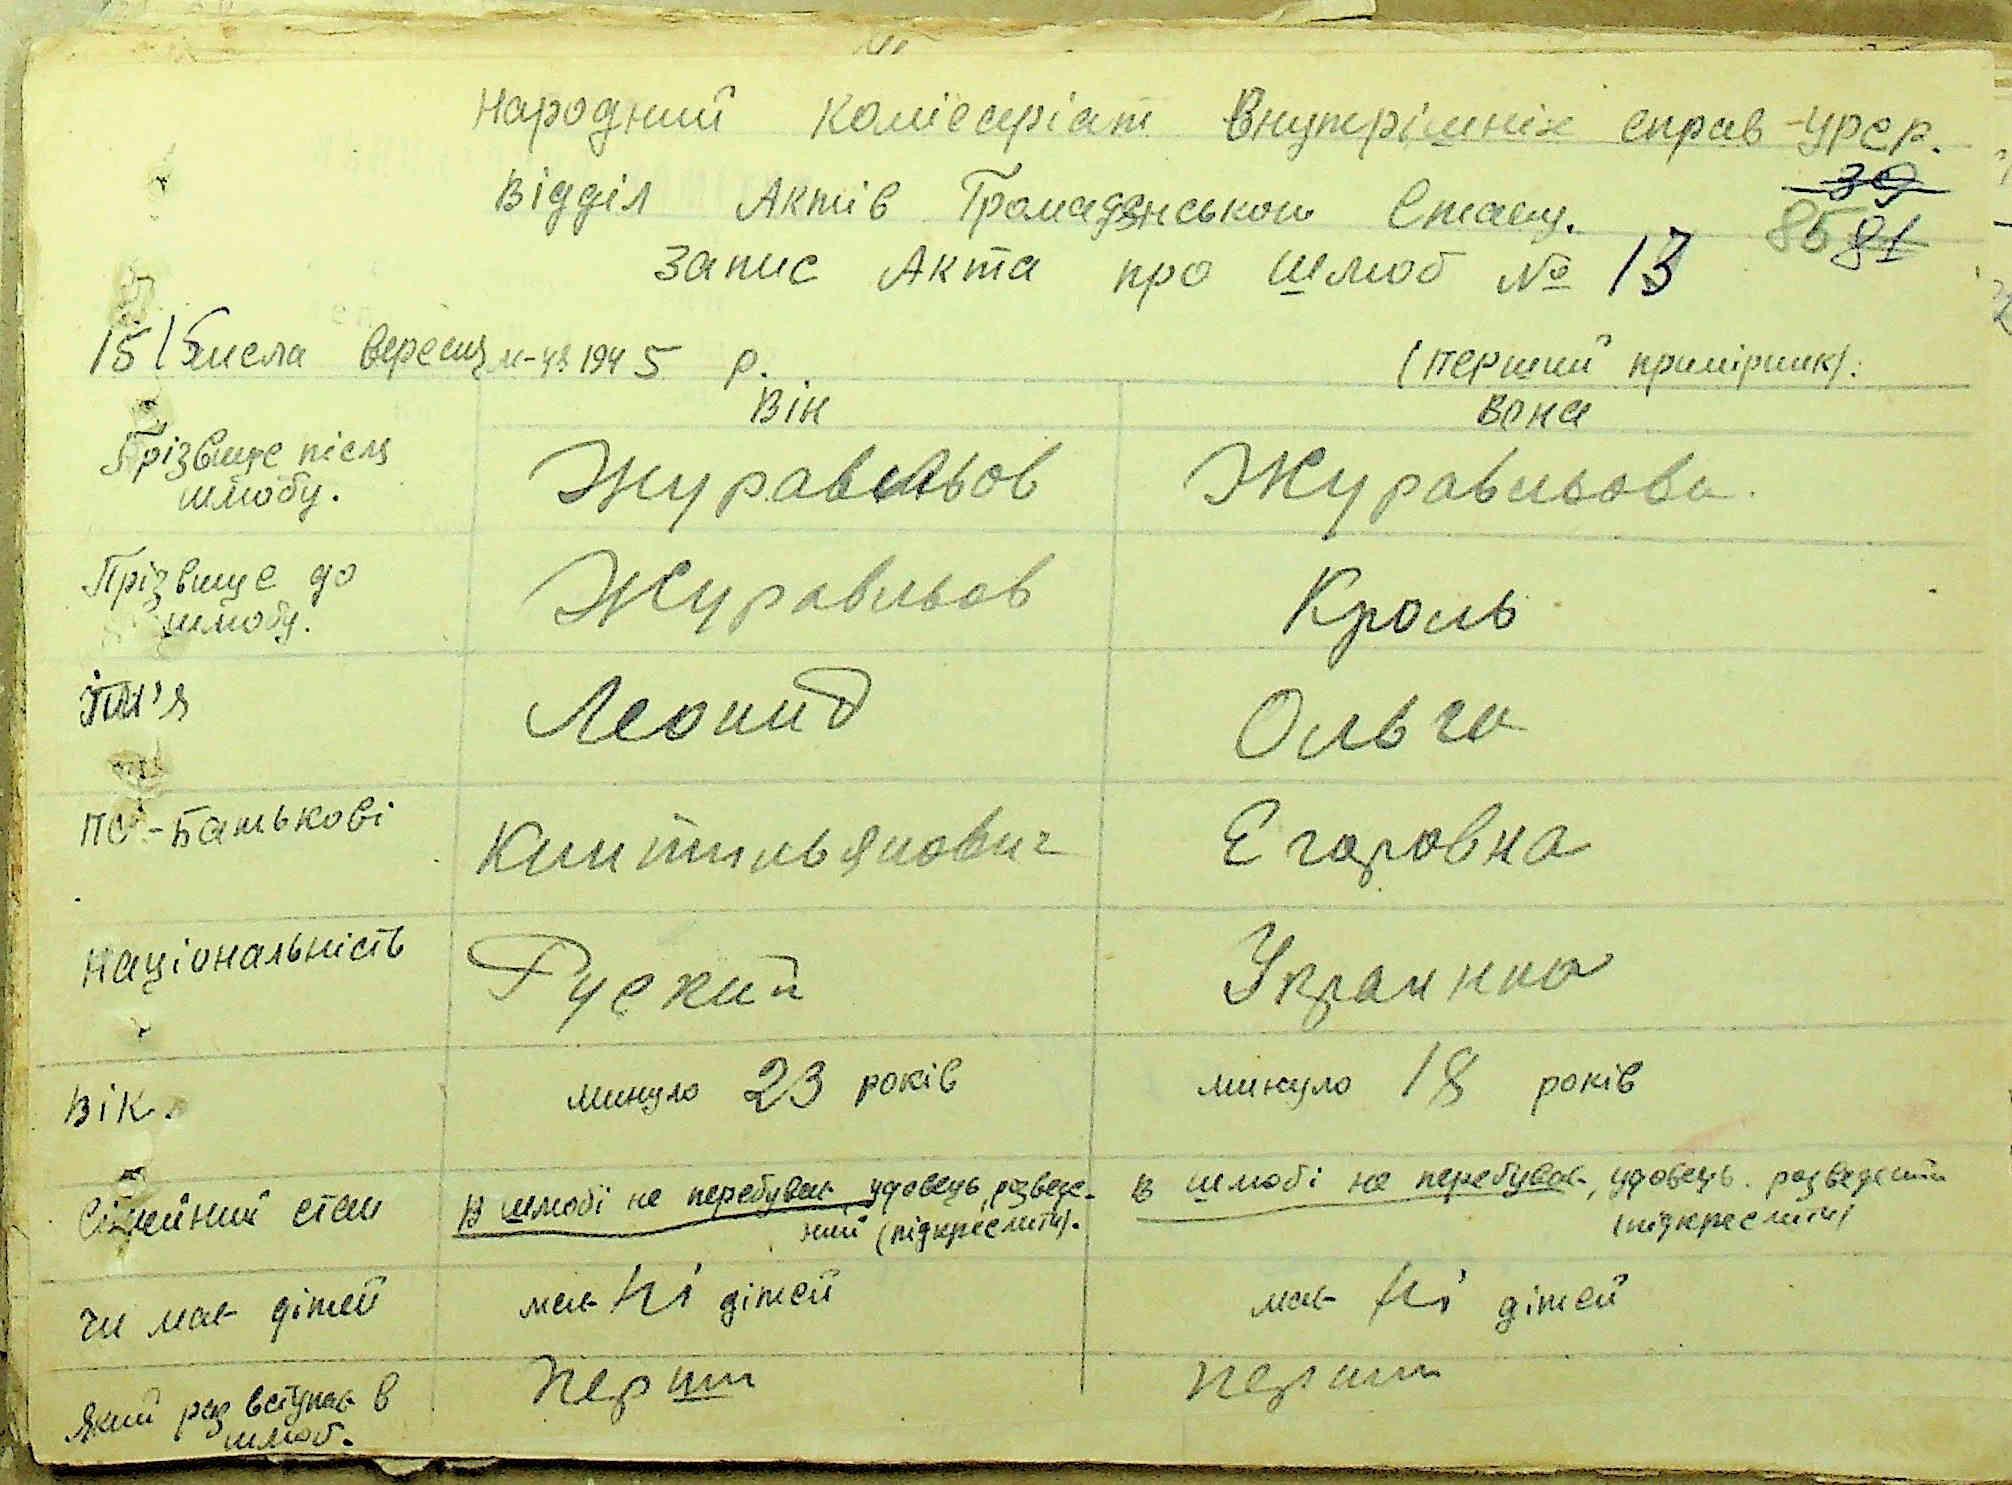 Народний Комісаріат Внутрішніх справ УРСР.
Відділ Актів Громадянського Стану.
39
85 81
Запис Акта про шлюб № 13
15 числа вересня м-ця 1945 р. (перший примірник).
Він Вона
Прізвище після шлюбу. Журавльов Журавльова.
Прізвище до шлюбу. Журавльов Кроль
Ім'я Леонид Ольга
по-Батькові Кинтильянович Егоровна
Національність Руский Украинка
Вік. минуло 23 років минуло 18 років
Сімейний стан В шлюбі не перебував, удовець, разведе- В шлюбі не перебував, удовець. разведений
ний (підкреслити). (підкреслити)
Чи має дітей має ні дітей має ні дітей
Який раз вступає в шлюб. перший перший